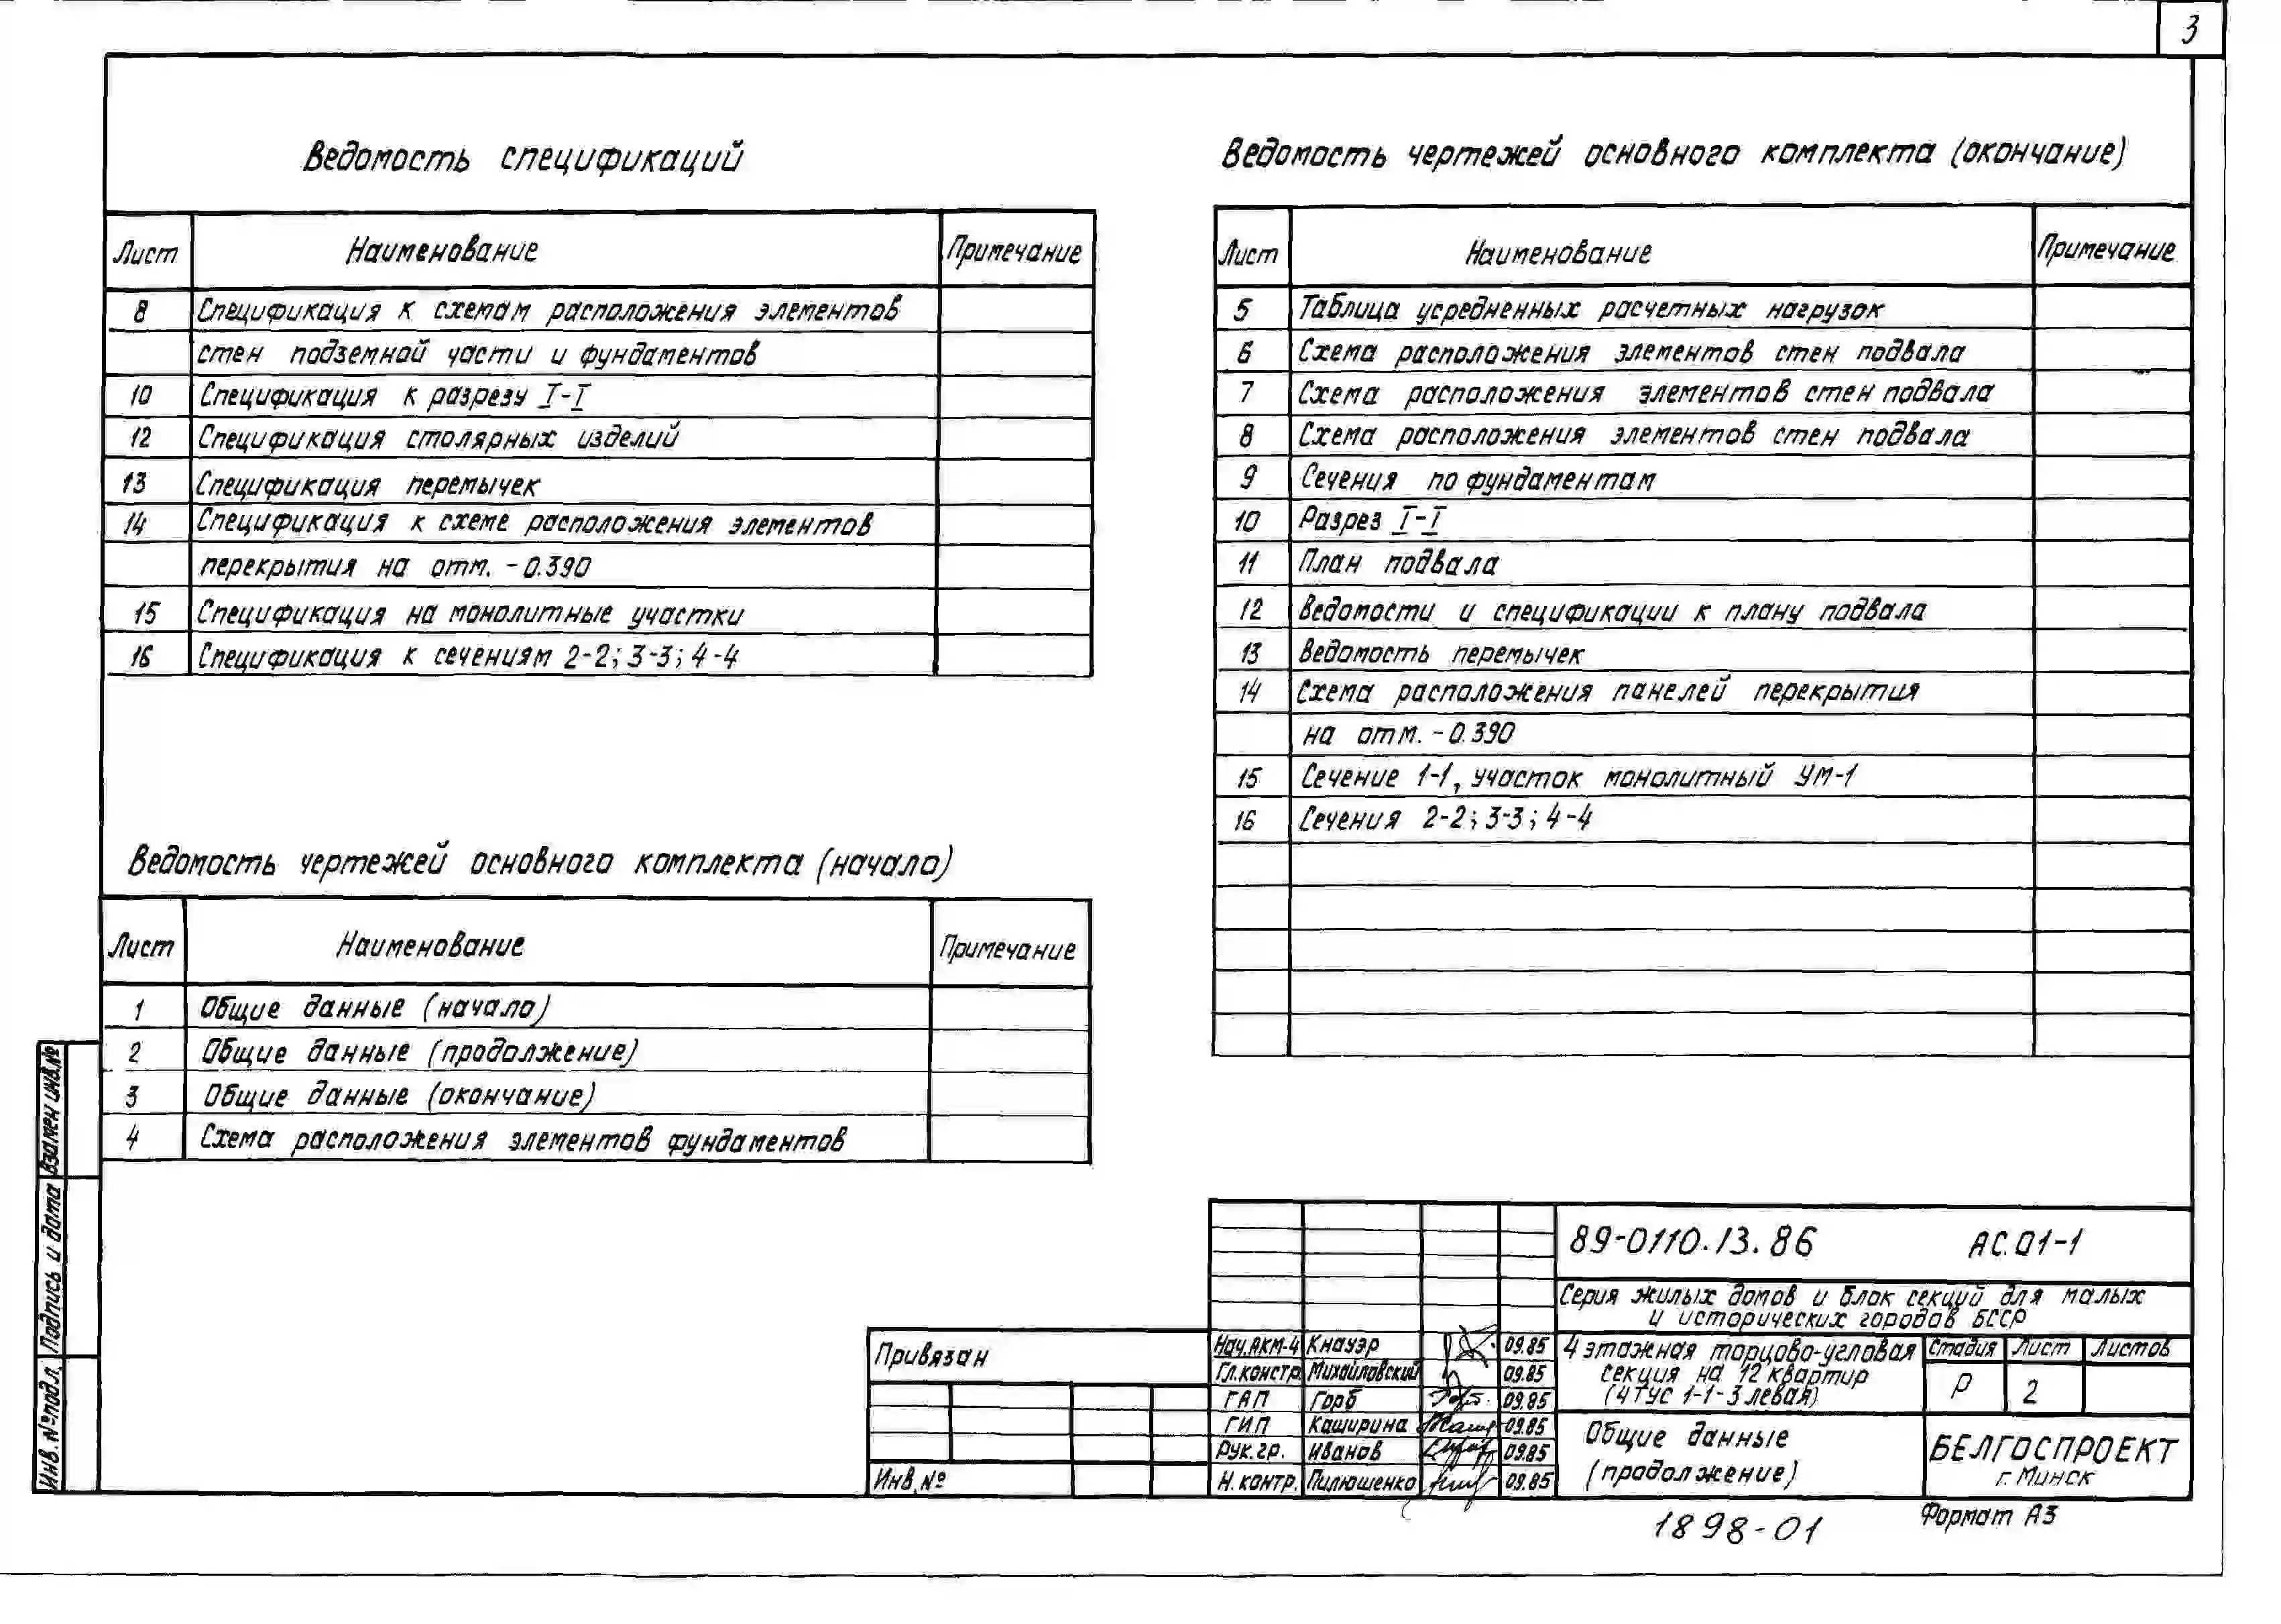 3
Ведомость спецификаций
Лист Наименование Примечание
8 Спецификация к схемам расположения элементов
стен подземной части и фундаментов
10 Спецификация к разрезу I-I
12 Спецификация столярных изделий
13 Спецификация перемычек
14 Спецификация к схеме расположения элементов
перекрытия на отм. -0.390
15 Спецификация на монолитные участки
16 Спецификация к сечениям 2-2; 3-3; 4-4
Ведомость чертежей основного комплекта (начало)
Лист Наименование Примечание
1 Общие данные (начало)
2 Общие данные (продолжение)
3 Общие данные (окончание)
4 Схема расположения элементов фундаментов
Ведомость чертежей основного комплекта (окончание)
Лист Наименование Примечание
5 Таблица усредненных расчетных нагрузок
6 Схема расположения элементов стен подвала
7 Схема расположения элементов стен подвала
8 Схема расположения элементов стен подвала
9 Сечения по фундаментам
10 Разрез I-I
11 План подвала
12 Ведомости и спецификации к плану подвала
13 Ведомость перемычек
14 Схема расположения панелей перекрытия
на отм. -0.390
15 Сечение 1-1, участок монолитный УМ-1
16 Сечения 2-2; 3-3; 4-4
Взамен инв.№
Подпись и дата
Инв.№подл.
Привязан
Инв.№
Нач.АКМ-4 Кнауэр 09.85
Гл.констр. Михайловский 09.85
ГАП Горб 09.85
ГИП Каширина 09.85
Рук.гр. Иванов 09.85
Н.контр. Пилюшенко 09.85
89-0110.13.86 АС.01-1
Серия жилых домов и блок секций для малых
и исторических городов БССР
4 этажная торцово-угловая
секция на 12 квартир
(4ТУС 1-1-3 левая)
Стадия Лист Листов
Р 2
Общие данные
(продолжение)
БЕЛГОСПРОЕКТ
г. Минск
1898-01
Формат А3